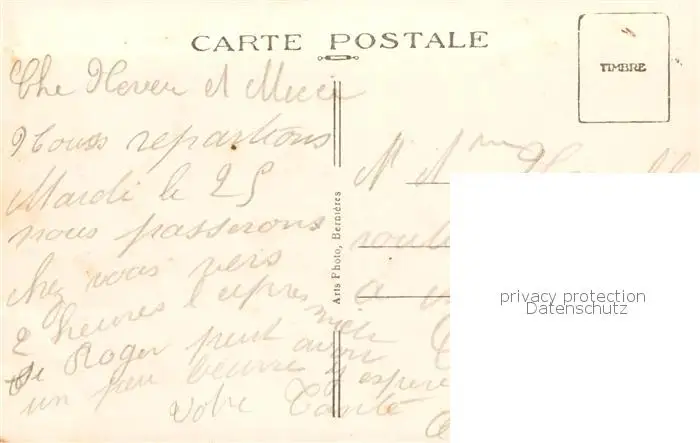 CARTE POSTALE
TIMBRE
Che Neveu et Niece
Nous repartions
Mardi le 25
nous passerons
chez vous vers
2 heures l apres midi
si Roger peut avoir
un peu beurre j espere
Votre Tante
Arts Photo, Bernières
M Mme
route
a
privacy protection
Datenschutz